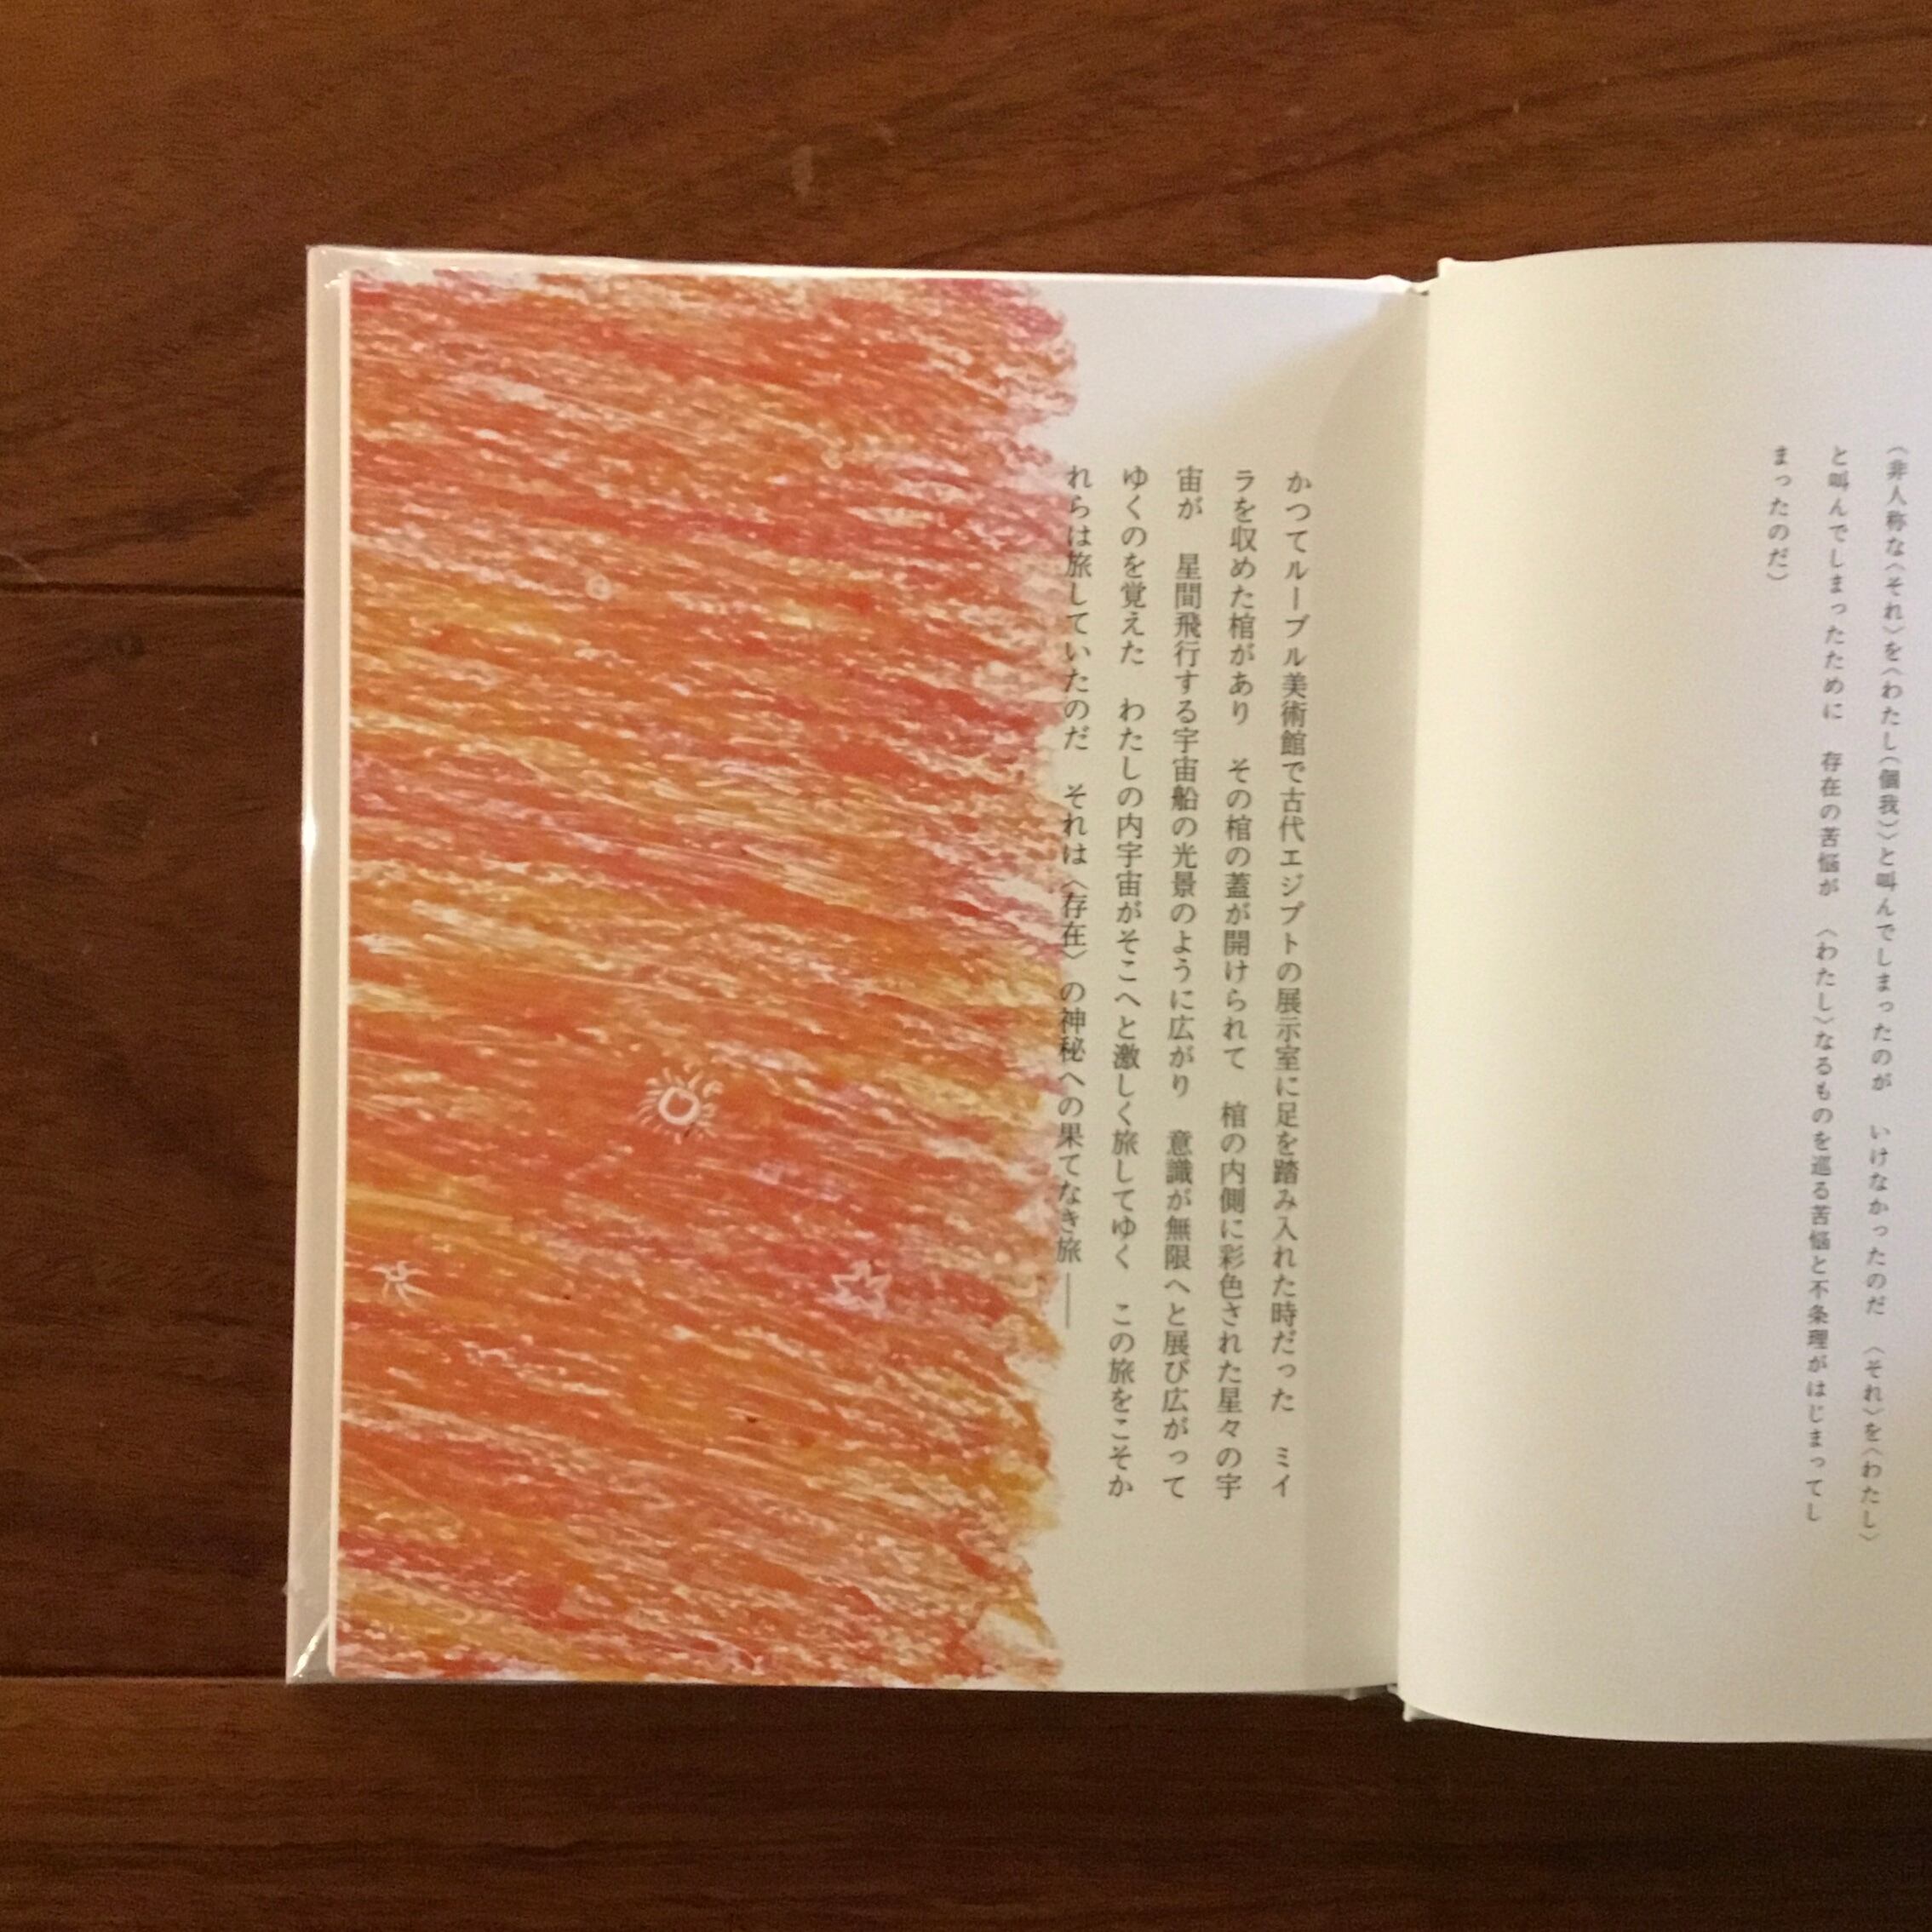 （非人称な〈それ〉を〈わたし（個我）〉と叫んでしまったのが　いけなかったのだ　〈それ〉を〈わたし〉
と叫んでしまったために　存在の苦悩が　〈わたし〉なるものを巡る苦悩と不条理がはじまってし
まったのだ）
かつてルーブル美術館で古代エジプトの展示室に足を踏み入れた時だった　ミイ
ラを収めた棺があり　その棺の蓋が開けられて　棺の内側に彩色された星々の宇
宙が　星間飛行する宇宙船の光景のように広がり　意識が無限へと展び広がって
ゆくのを覚えた　わたしの内宇宙がそこへと激しく旅してゆく　この旅をこそか
れらは旅していたのだ　それは〈存在〉の神秘への果てなき旅――